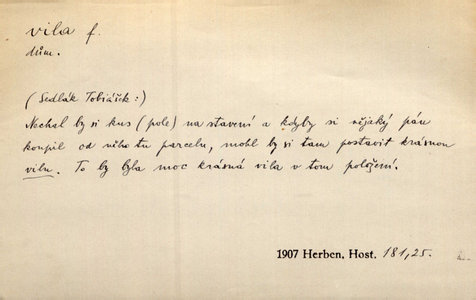 vila f.
dům.
(Sedlák Tobiášek:)
Nechal by si kus (pole) na stavení a kdyby si nějaký pán
koupil od něho tu parcelu, mohl by si tam postavit krásnou
vilu. To by byla moc krásná vila v tom položení.
1907 Herben, Host. 181,25.